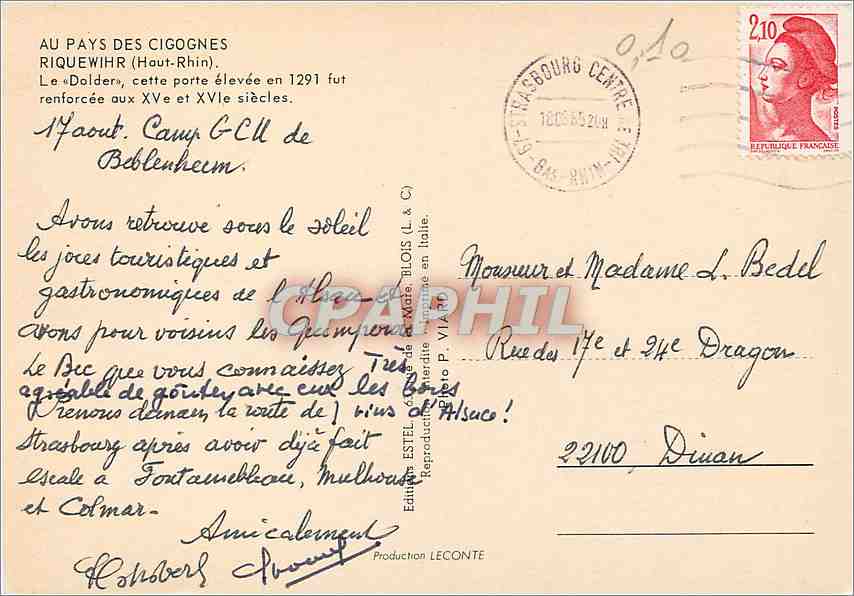 AU PAYS DES CIGOGNES
RIQUEWIHR (Haut-Rhin).
Le «Dolder», cette porte élevée en 1291 fut
renforcée aux XVe et XVIe siècles.
17 aout. Camp GCU de
Beblenheim.
Avons retrouvé sous le soleil
les joies touristiques et
gastronomiques de l'Alsace et
avons pour voisins les Quimperois
Le Bec que vous connaissez Très
agréable de goûter avec eux les bons
vins d'Alsace!
Prenons demain la route de
Strasbourg après avoir déjà fait
escale a Fontainebleau, Mulhouse
et Colmar-
Amicalement
Editions ESTEL, BLOIS (L. & C)
Reproduction interdite Imprimé en Italie.
Photo P. VIARD
Production LECONTE
CPAPHIL
0,10
67-STRASBOURG CENTRE DE TRI
BAS-RHIN
2,10
POSTES
REPUBLIQUE FRANÇAISE
Monsieur et Madame L. Bedel
Rue des 17e et 24e Dragon
22100, Dinan